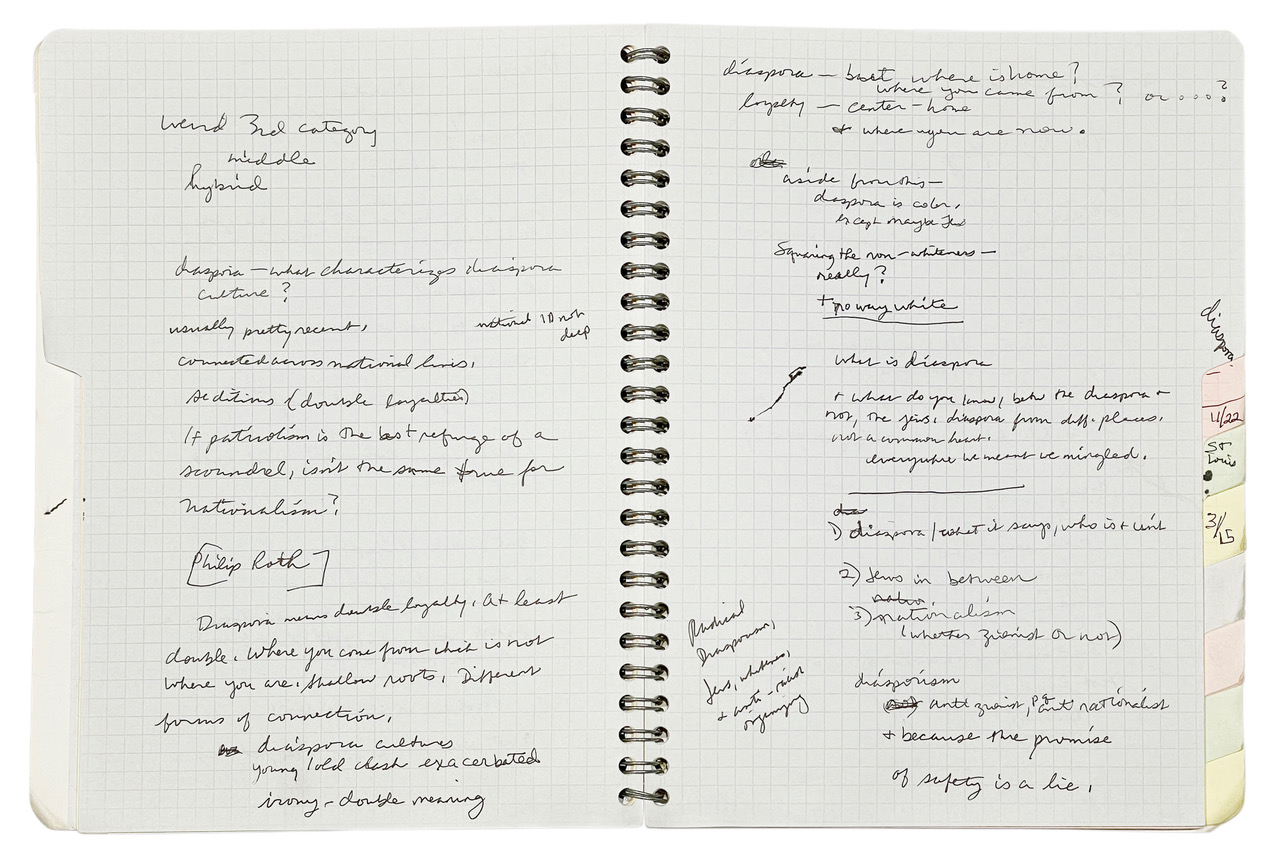 weird 3rd category
middle
hybrid
diaspora – what characterizes diaspora
culture?
usually pretty recent,
national ID not
deep
connected across national lines,
seditious (double loyalties)
If patriotism is the last refuge of a
scoundrel, isn't the same true for
nationalism?
[Philip Roth]
Diaspora means double loyalty. At least
double. Where you come from which is not
where you are. Shallow roots. Different
forms of connection.
diaspora cultures
young/old clash exacerbated
irony – double meaning
diaspora – but, where is home?
where you came from? or . . . . ?
loyalty – center – home
+ where you are now.
aside from this –
diaspora is color,
except maybe Jews
Squaring the non-whiteness –
really?
+ no way white
what is diaspora
+ what do you know, betw the diaspora +
not, the Jews. diaspora from diff. places.
not a common heart.
everywhere we meant we mingled.
1) diaspora / what it says, who is + isn't
2) Jews in between
3) nationalism
(whether zionist or not)
Radical
Diasporism,
Jews, whiteness,
+ anti-racist
organizing
diasporism
anti zionist, anti nationalist
+ because the promise
of safety is a lie.
diaspora
4/22
St
Louis
3/15